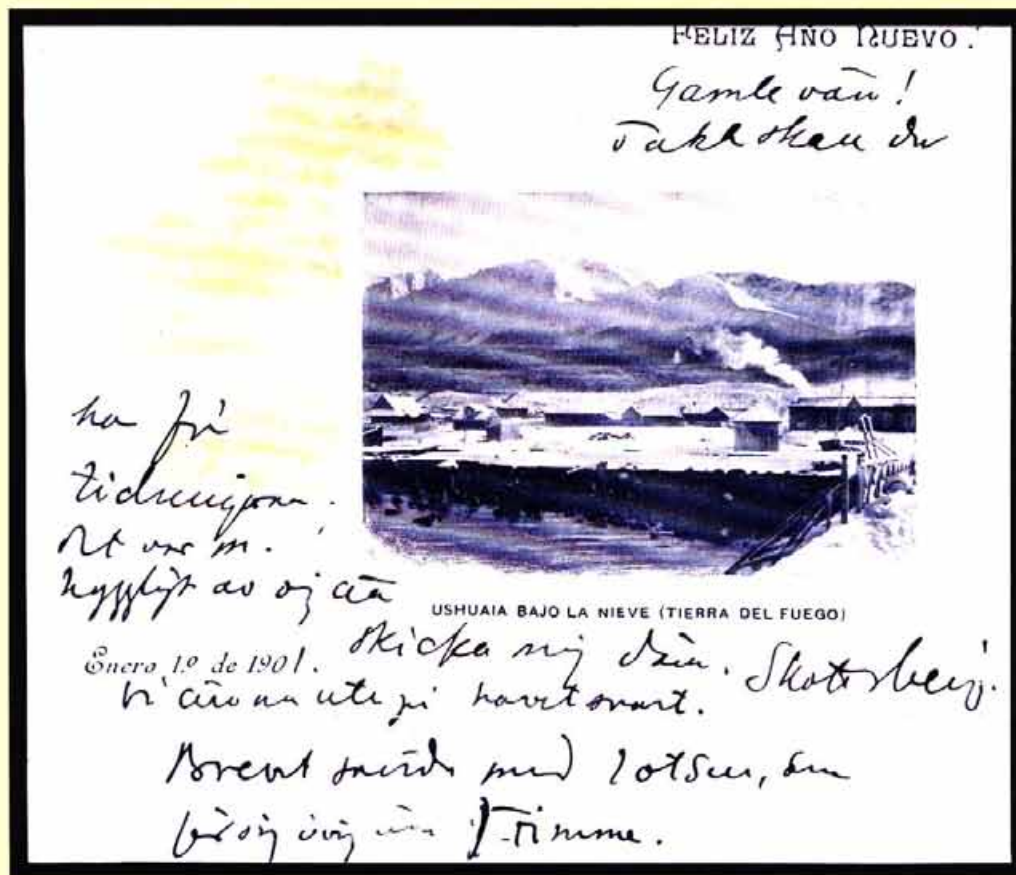 FELIZ AÑO NUEVO.
Gamle vän!
Takk skall du
ha för
tidningarna.
Det var
hyggligt av dig att
USHUAIA BAJO LA NIEVE (TIERRA DEL FUEGO)
skicka mig dem.
Enero 1.º de 1901.
Skottsberg.
Vi äro nu ute på havet snart.
Brevet sänds med lotsen, som
timme.